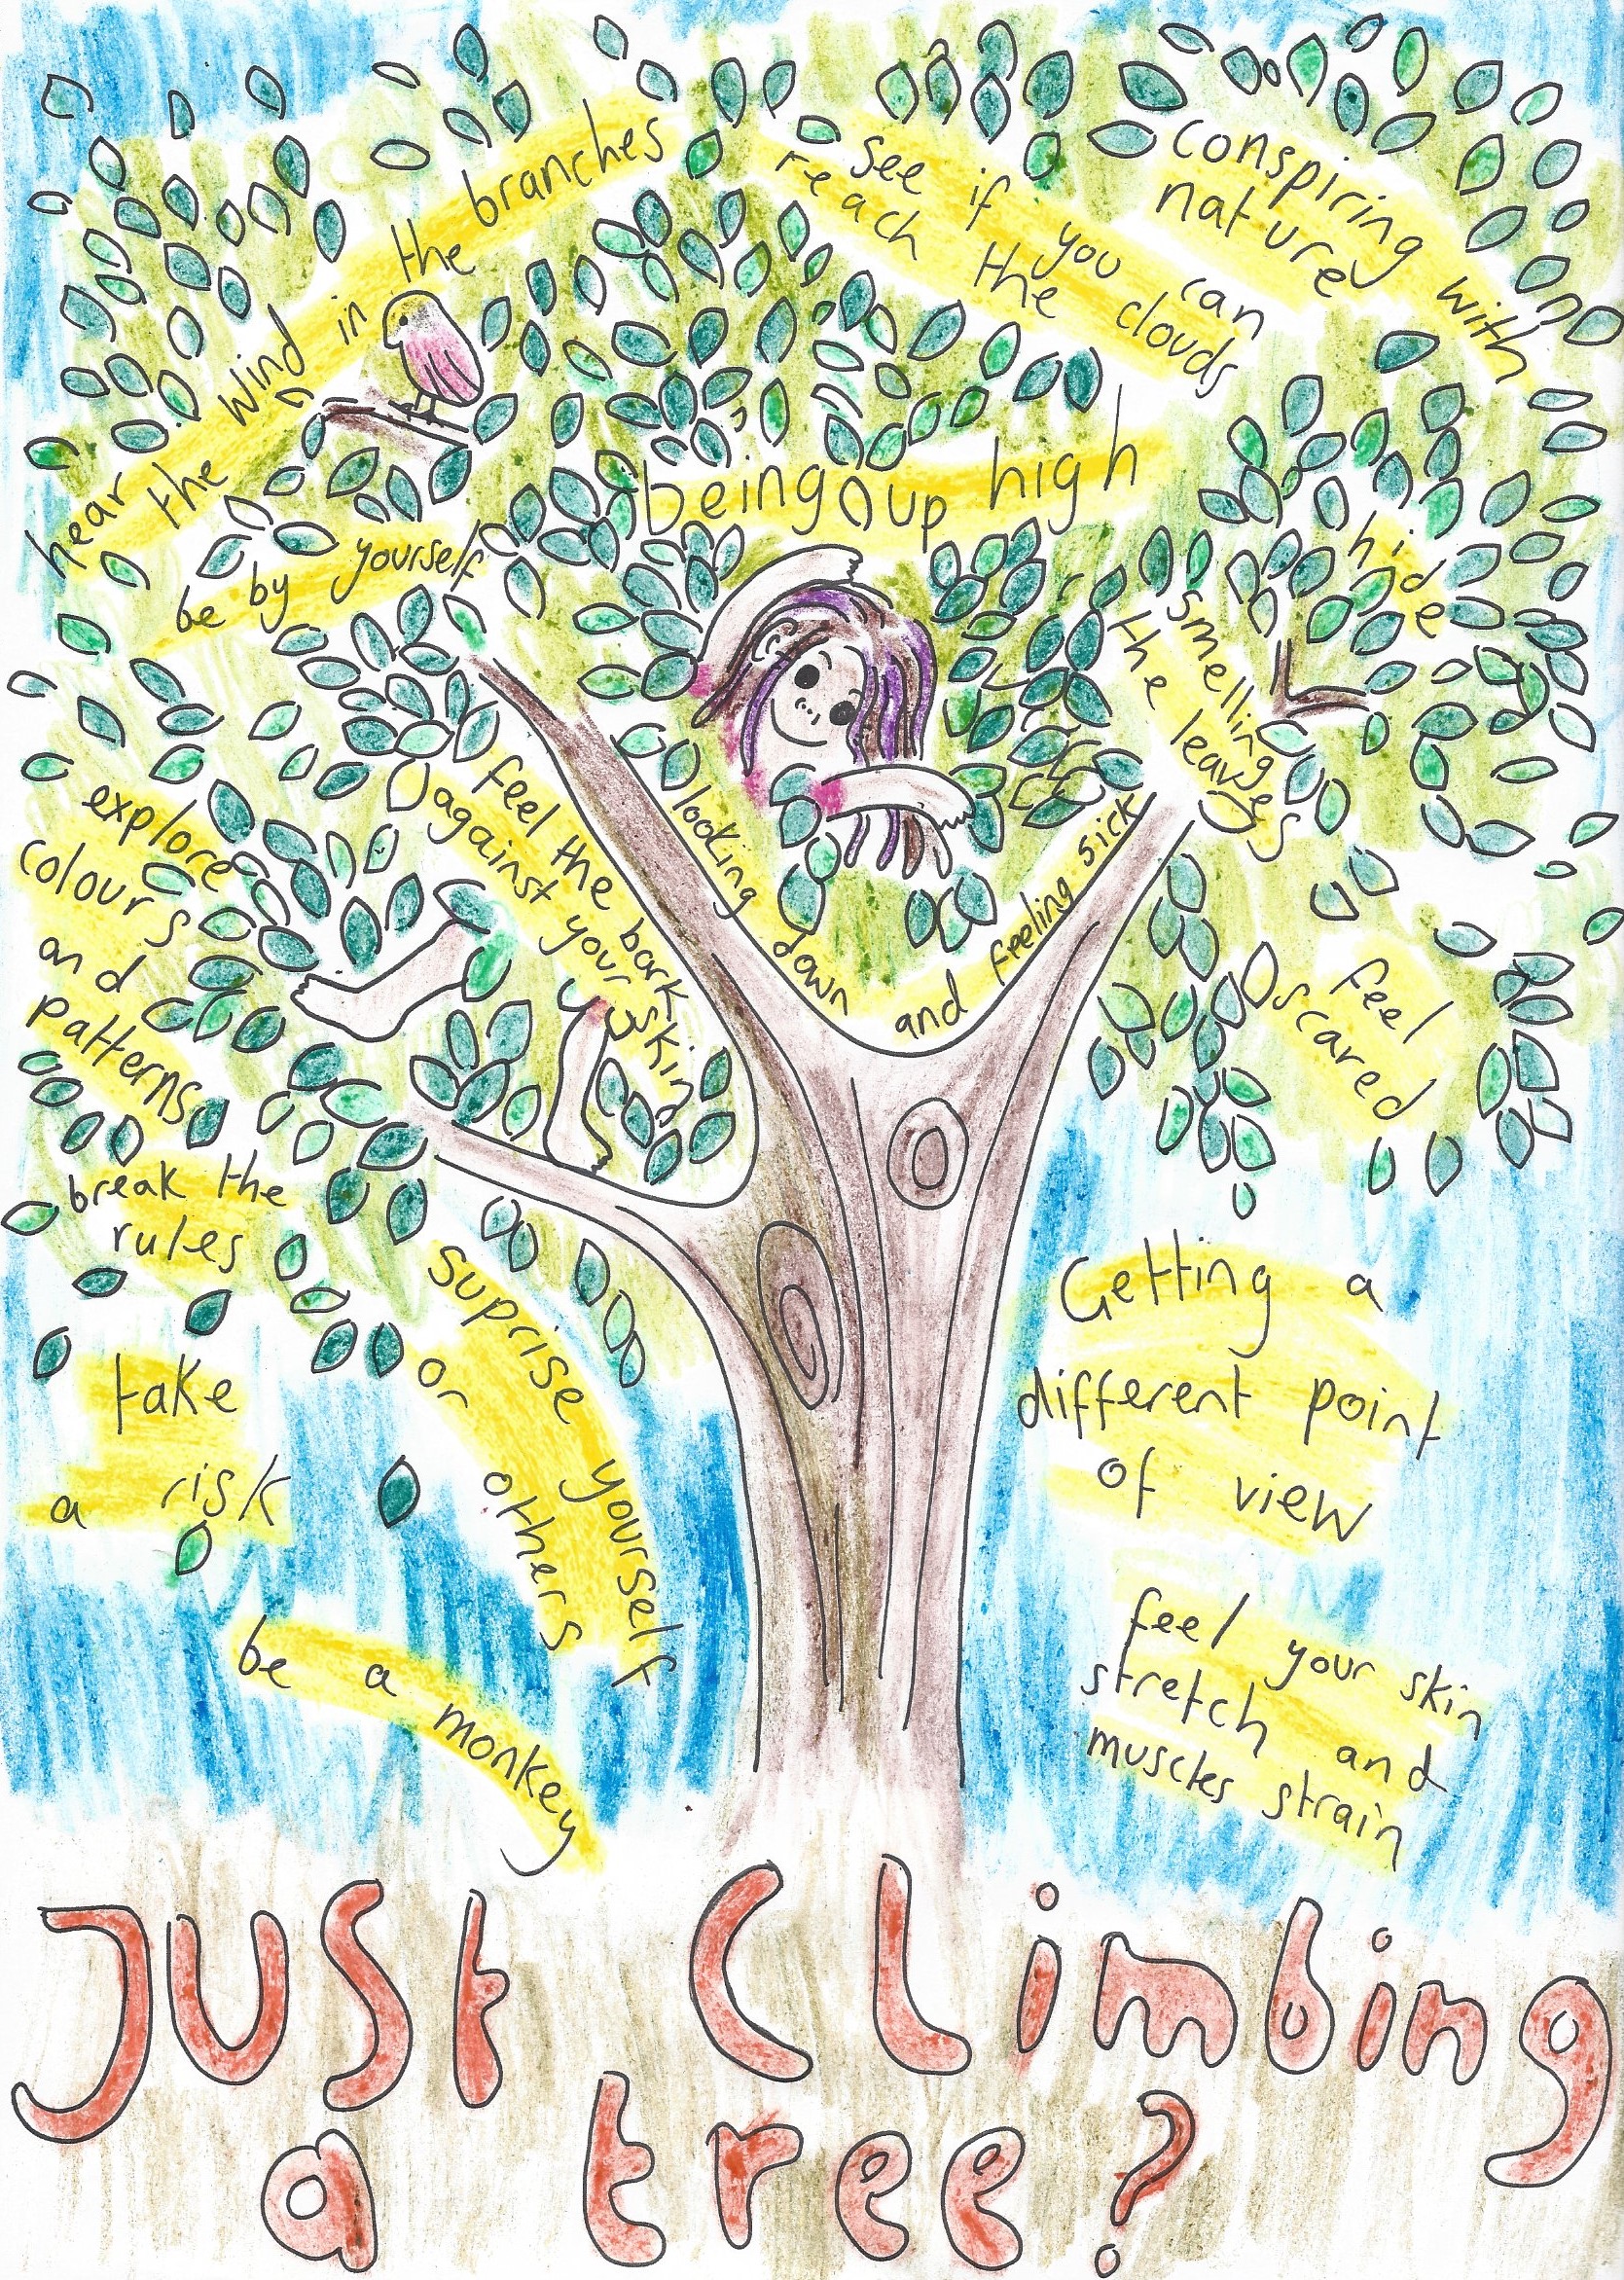 hear the wind in the branches
see if you can
reach the clouds
conspiring with
nature
being up high
be by yourself
hide
smelling
the leaves
feel the bark
against your skin
looking down and feeling sick
explore
colours
and
patterns
feel
scared
break the
rules
suprise yourself
or others
take
a risk
Getting a
different point
of view
be a monkey
feel your skin
stretch and
muscles strain
Just Climbing
a tree?